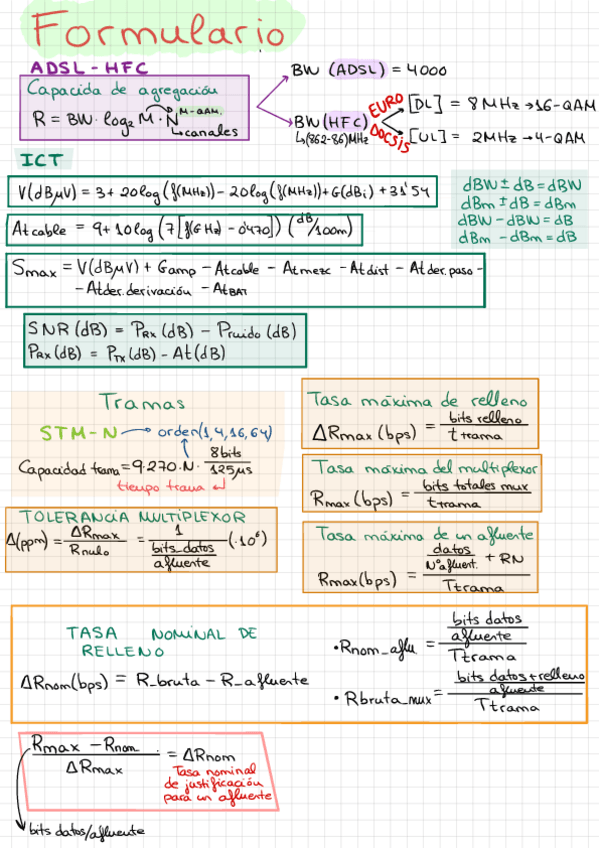 Formulario
ADSL - HFC
Capacida de agregación
R = BW · log₂ M · N M-QAM
canales
BW (ADSL) = 4000
BW (HFC)
(862-86) MHz
EURO
DOCSIS
[DL] = 8 MHz → 16-QAM
[UL] = 2 MHz → 4-QAM
ICT
V(dBμV) = 3 + 20log (f(MHz)) - 20log (f(MHz)) + G(dBi) + 31'54
At cable = 9 + 10log (7[f(GHz) - 0'470]) (dB/100m)
dBW ± dB = dBW
dBm ± dB = dBm
dBW - dBW = dB
dBm - dBm = dB
Smax = V(dBμV) + Gamp - Atcable - Atmezc - Atdist - Atder.paso -
- Atder.derivación - AtBAT
SNR (dB) = PRx (dB) - Pruido (dB)
PRx (dB) = PTx (dB) - At (dB)
Tramas
STM-N → orden (1, 4, 16, 64)
Capacidad trama = 9·270·N · 8bits / 125μs
tiempo trama
Tasa máxima de relleno
ΔRmax (bps) = bits relleno / t trama
Tasa máxima del multiplexor
Rmax (bps) = bits totales mux / t trama
TOLERANCIA MULTIPLEXOR
Δ(ppm) = ΔRmax / Rnulo = 1 / (bits_datos / afluente) (·10⁶)
Tasa máxima de un afluente
Rmax (bps) = (datos / Nº afluent. + RN) / Ttrama
TASA NOMINAL DE
RELLENO
ΔRnom (bps) = R_bruta - R_afluente
• Rnom_aflu = (bits datos / afluente) / Ttrama
• Rbruta_mux = (bits datos+relleno / afluente) / Ttrama
(Rmax - Rnom) / ΔRmax = ΔRnom
Tasa nominal
de justificación
para un afluente
bits datos/afluente